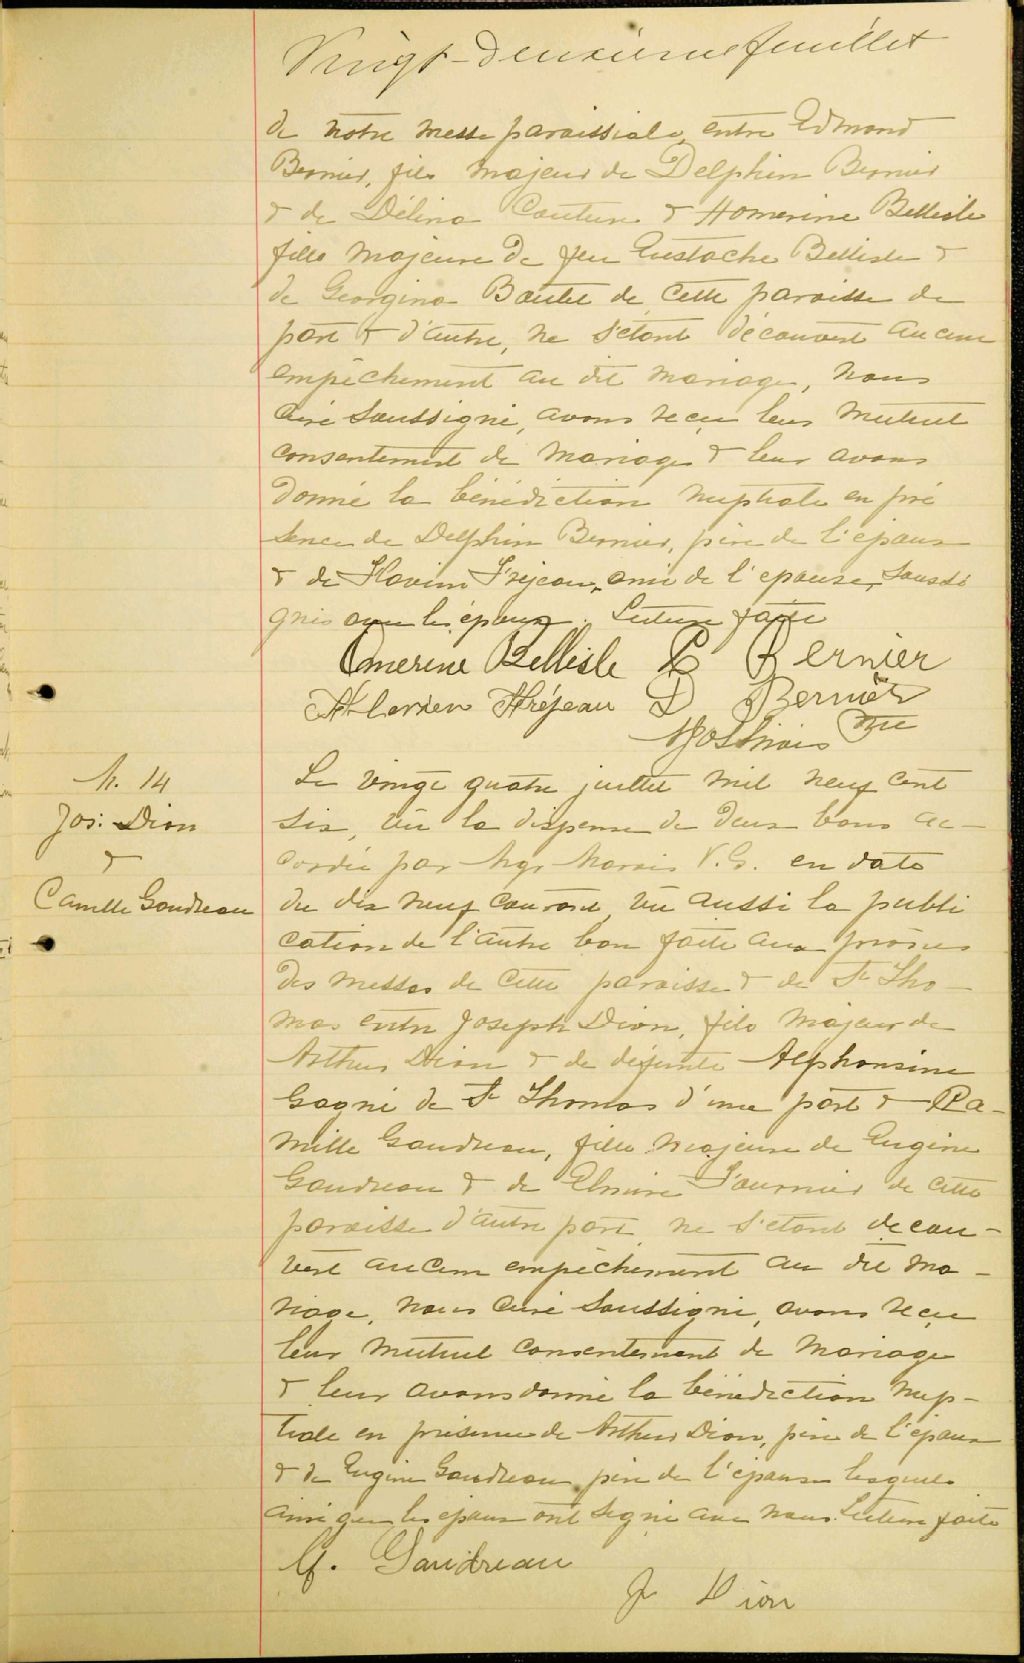 Vingt-deuxième feuillet
de notre messe paroissiale, entre Edmond
Bernier, fils majeur de Delphin Bernier
& de Délina Couture & Homerine Bellisle
fille majeure de feu Eustache Bellisle &
de Georgina Boutet de cette paroisse de
part & d'autre, ne s'étant découvert aucun
empêchement au dit mariage, nous
curé soussigné, avons reçu leur mutuel
consentement de mariage & leur avons
donné la bénédiction nuptiale en pré
sence de Delphin Bernier, père de l'époux
& de Flavien Fréjeau, ami de l'épouse, soussi
gnés avec les époux. Lecture faite
Omerine Bellisle E Bernier
Flavien Fréjeau D Bernier
Ptre
M. 14
Jos: Dion
&
Camille Gaudreau
Le vingt quatre juillet mil neuf cent
six, vu la dispense de deux bans ac-
cordée par Mgr Marois V.G. en date
du dix neuf courant, vu aussi la publi
cation de l'autre ban faite aux prônes
des messes de cette paroisse & de St Tho-
mas entre Joseph Dion, fils majeur de
Arthur Dion & de défunte Alphonsine
Gagné de St Thomas d'une part & Ca-
mille Gaudreau, fille majeure de Eugène
Gaudreau & de Elmire Fournier de cette
paroisse d'autre part, ne s'étant décou-
vert aucun empêchement au dit ma-
riage, nous curé soussigné, avons reçu
leur mutuel consentement de mariage
& leur avons donné la bénédiction nup-
tiale en présence de Arthur Dion, père de l'époux
& de Eugène Gaudreau père de l'épouse lesquels
ainsi que les époux ont signé avec nous. Lecture faite
Gaudreau
J Dion